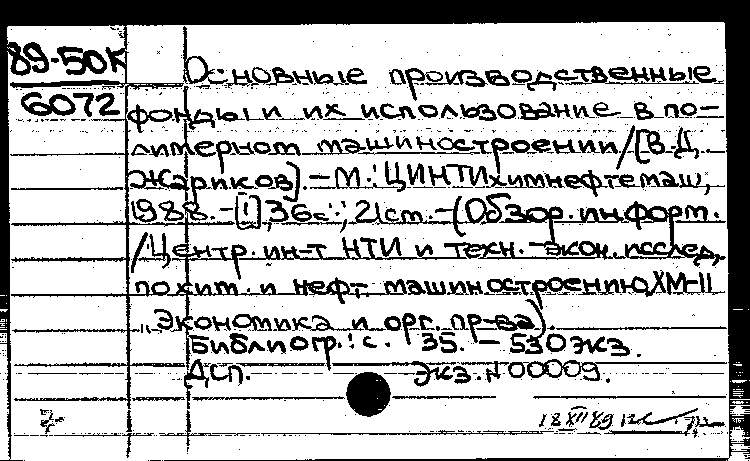 89-50К
6072
Основные производственные
фонды и их использование в по-
лимерном машиностроении/[В.Д.
Жариков].-М.:ЦИНТИхимнефтемаш,
1988.-[1],36с.:,21см.-(Обзор.информ.
/Центр.ин-т НТИ и техн.-экон.исслед.
по хим. и нефт. машиностроению,ХМ-11
"Экономика и орг. пр-ва).
Библиогр.: с. 35. - 530экз.
Дсп. Экз.N00009.
18 XII 89